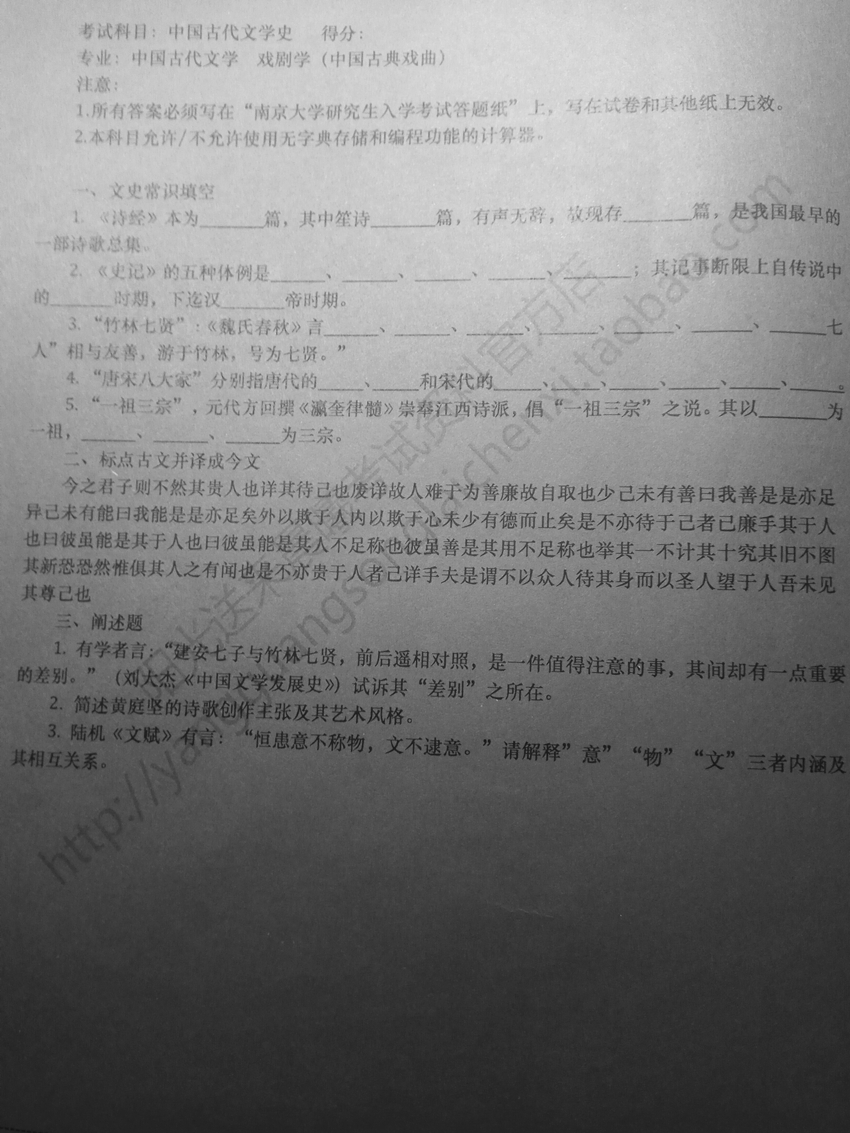 考试科目：中国古代文学史 得分：
专业：中国古代文学 戏剧学（中国古典戏曲）
注意：
1.所有答案必须写在“南京大学研究生入学考试答题纸”上，写在试卷和其他纸上无效。
2.本科目允许/不允许使用无字典存储和编程功能的计算器。
一、文史常识填空
1. 《诗经》本为______篇，其中笙诗______篇，有声无辞，故现存______篇，是我国最早的
一部诗歌总集。
2. 《史记》的五种体例是______、______、______、______、______；其记事断限上自传说中
的______时期，下迄汉______帝时期。
3. “竹林七贤”：《魏氏春秋》言______、______、______、______、______、______、______七
人”相与友善，游于竹林，号为七贤。”
4. “唐宋八大家”分别指唐代的_____、_____和宋代的_____、_____、_____、_____、_____、_____。
5. “一祖三宗”，元代方回撰《瀛奎律髓》崇奉江西诗派，倡“一祖三宗”之说。其以______为
一祖，______、______、______为三宗。
二、标点古文并译成今文
今之君子则不然其贵人也详其待己也废详故人难于为善廉故自取也少己未有善曰我善是是亦足
异己未有能曰我能是是亦足矣外以欺于人内以欺于心未少有德而止矣是不亦待于己者已廉乎其于人
也曰彼虽能是其于人也曰彼虽能是其人不足称也彼虽善是其用不足称也举其一不计其十究其旧不图
其新恐恐然惟俱其人之有闻也是不亦贵于人者己详手夫是谓不以众人待其身而以圣人望于人吾未见
其尊己也
三、阐述题
1. 有学者言：“建安七子与竹林七贤，前后遥相对照，是一件值得注意的事，其间却有一点重要
的差别。”（刘大杰《中国文学发展史》）试诉其“差别”之所在。
2. 简述黄庭坚的诗歌创作主张及其艺术风格。
3. 陆机《文赋》有言：“恒患意不称物，文不逮意。”请解释”意”“物”“文”三者内涵及
其相互关系。